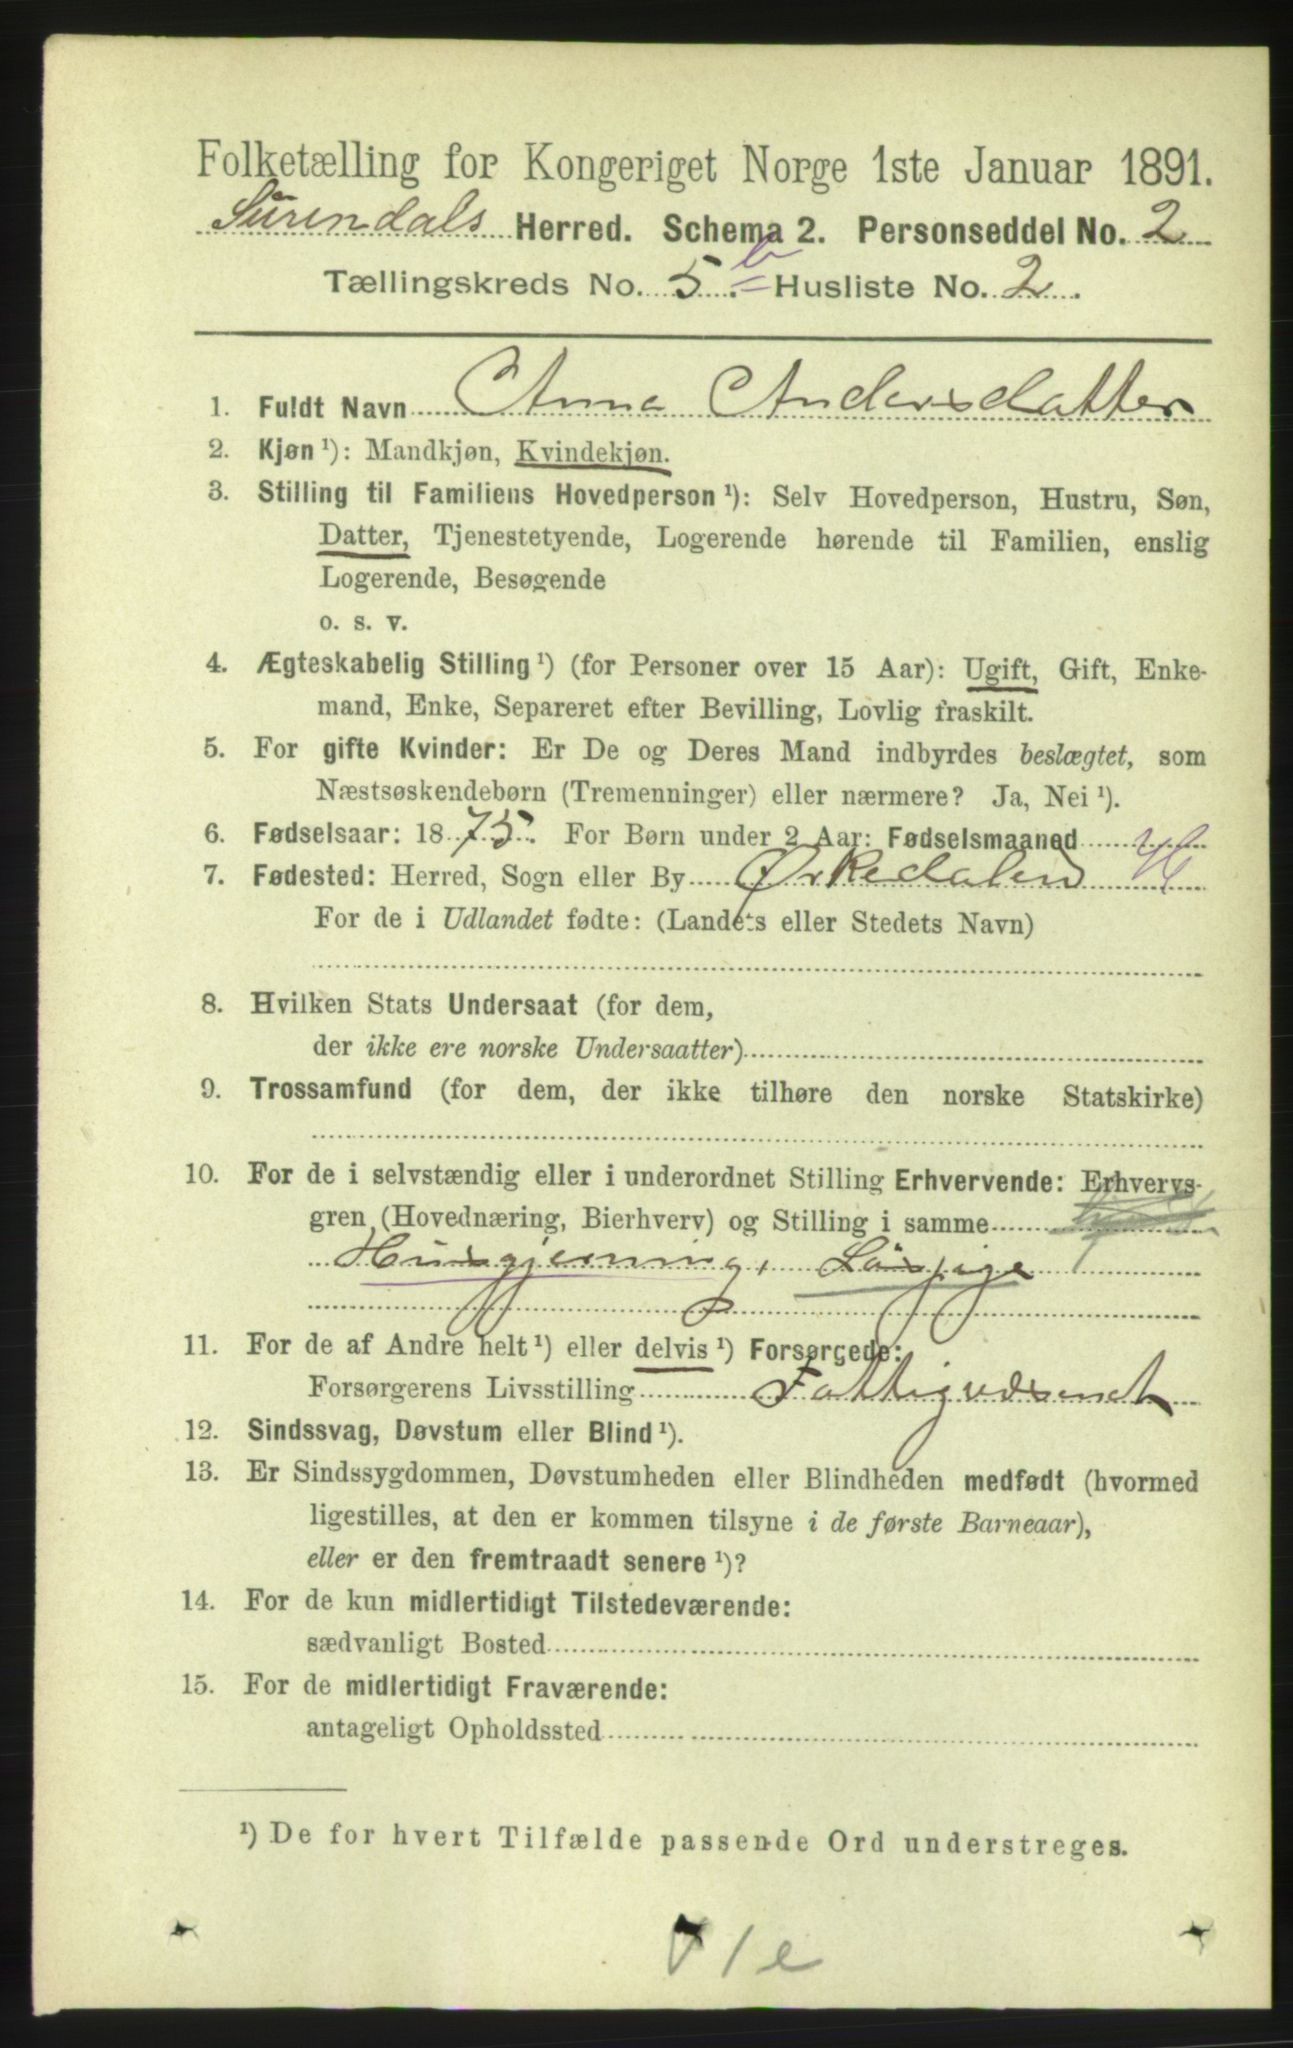 Folketælling for Kongeriget Norge 1ste Januar 1891.
Surendals Herred. Schema 2. Personseddel No. 2
Tællingskreds No. 5 b Husliste No. 2.
1. Fuldt Navn Anne Andersdatter
2. Kjøn ¹): Mandkjøn, Kvindekjøn.
3. Stilling til Familiens Hovedperson ¹): Selv Hovedperson, Hustru, Søn,
Datter, Tjenestetyende, Logerende hørende til Familien, enslig
Logerende, Besøgende
o. s. v.
4. Ægteskabelig Stilling ¹) (for Personer over 15 Aar): Ugift, Gift, Enke-
mand, Enke, Separeret efter Bevilling, Lovlig fraskilt.
5. For gifte Kvinder: Er De og Deres Mand indbyrdes beslægtet, som
Næstsøskendebørn (Tremenninger) eller nærmere? Ja, Nei ¹).
6. Fødselsaar: 1875. For Børn under 2 Aar: Fødselsmaaned
7. Fødested: Herred, Sogn eller By Ørkedalen
For de i Udlandet fødte: (Landets eller Stedets Navn)
8. Hvilken Stats Undersaat (for dem,
der ikke ere norske Undersaatter)
9. Trossamfund (for dem, der ikke tilhøre den norske Statskirke)
10. For de i selvstændig eller i underordnet Stilling Erhvervende: Erhvervs-
gren (Hovednæring, Bierhverv) og Stilling i samme
Husgjerning, Løspige
11. For de af Andre helt ¹) eller delvis ¹) Forsørgede:
Forsørgerens Livsstilling Fattigvæsenet
12. Sindssvag, Døvstum eller Blind ¹).
13. Er Sindssygdommen, Døvstumheden eller Blindheden medfødt (hvormed
ligestilles, at den er kommen tilsyne i de første Barneaar),
eller er den fremtraadt senere ¹)?
14. For de kun midlertidigt Tilstedeværende:
sædvanligt Bosted
15. For de midlertidigt Fraværende:
antageligt Opholdssted
¹) De for hvert Tilfælde passende Ord understreges.